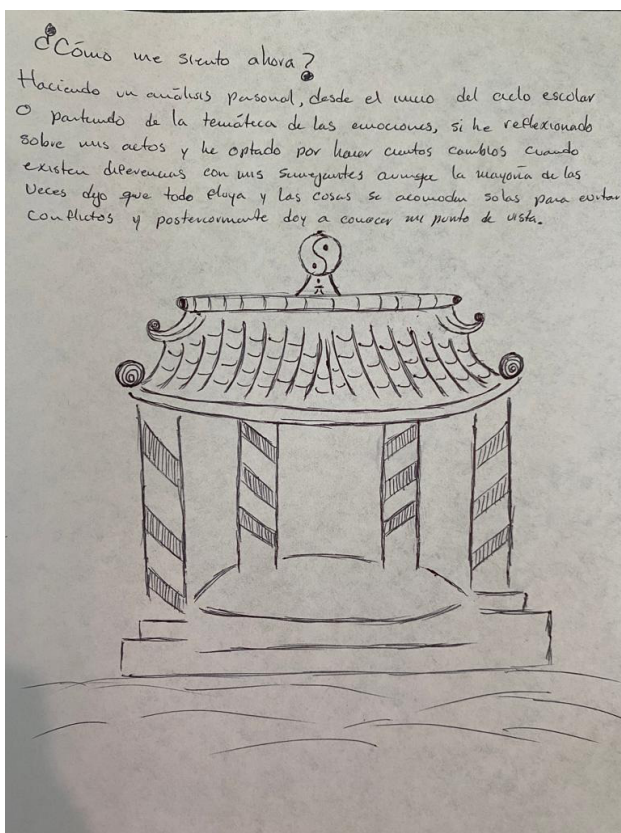 ¿Cómo me siento ahora?
Haciendo un análisis personal, desde el inicio del ciclo escolar
o partiendo de la temática de las emociones, si he reflexionado
sobre mis actos y he optado por hacer ciertos cambios cuando
existen diferencias con mis semejantes aunque la mayoría de las
veces dejo que todo fluya y las cosas se acomoden solas para evitar
conflictos y posteriormente doy a conocer mi punto de vista.